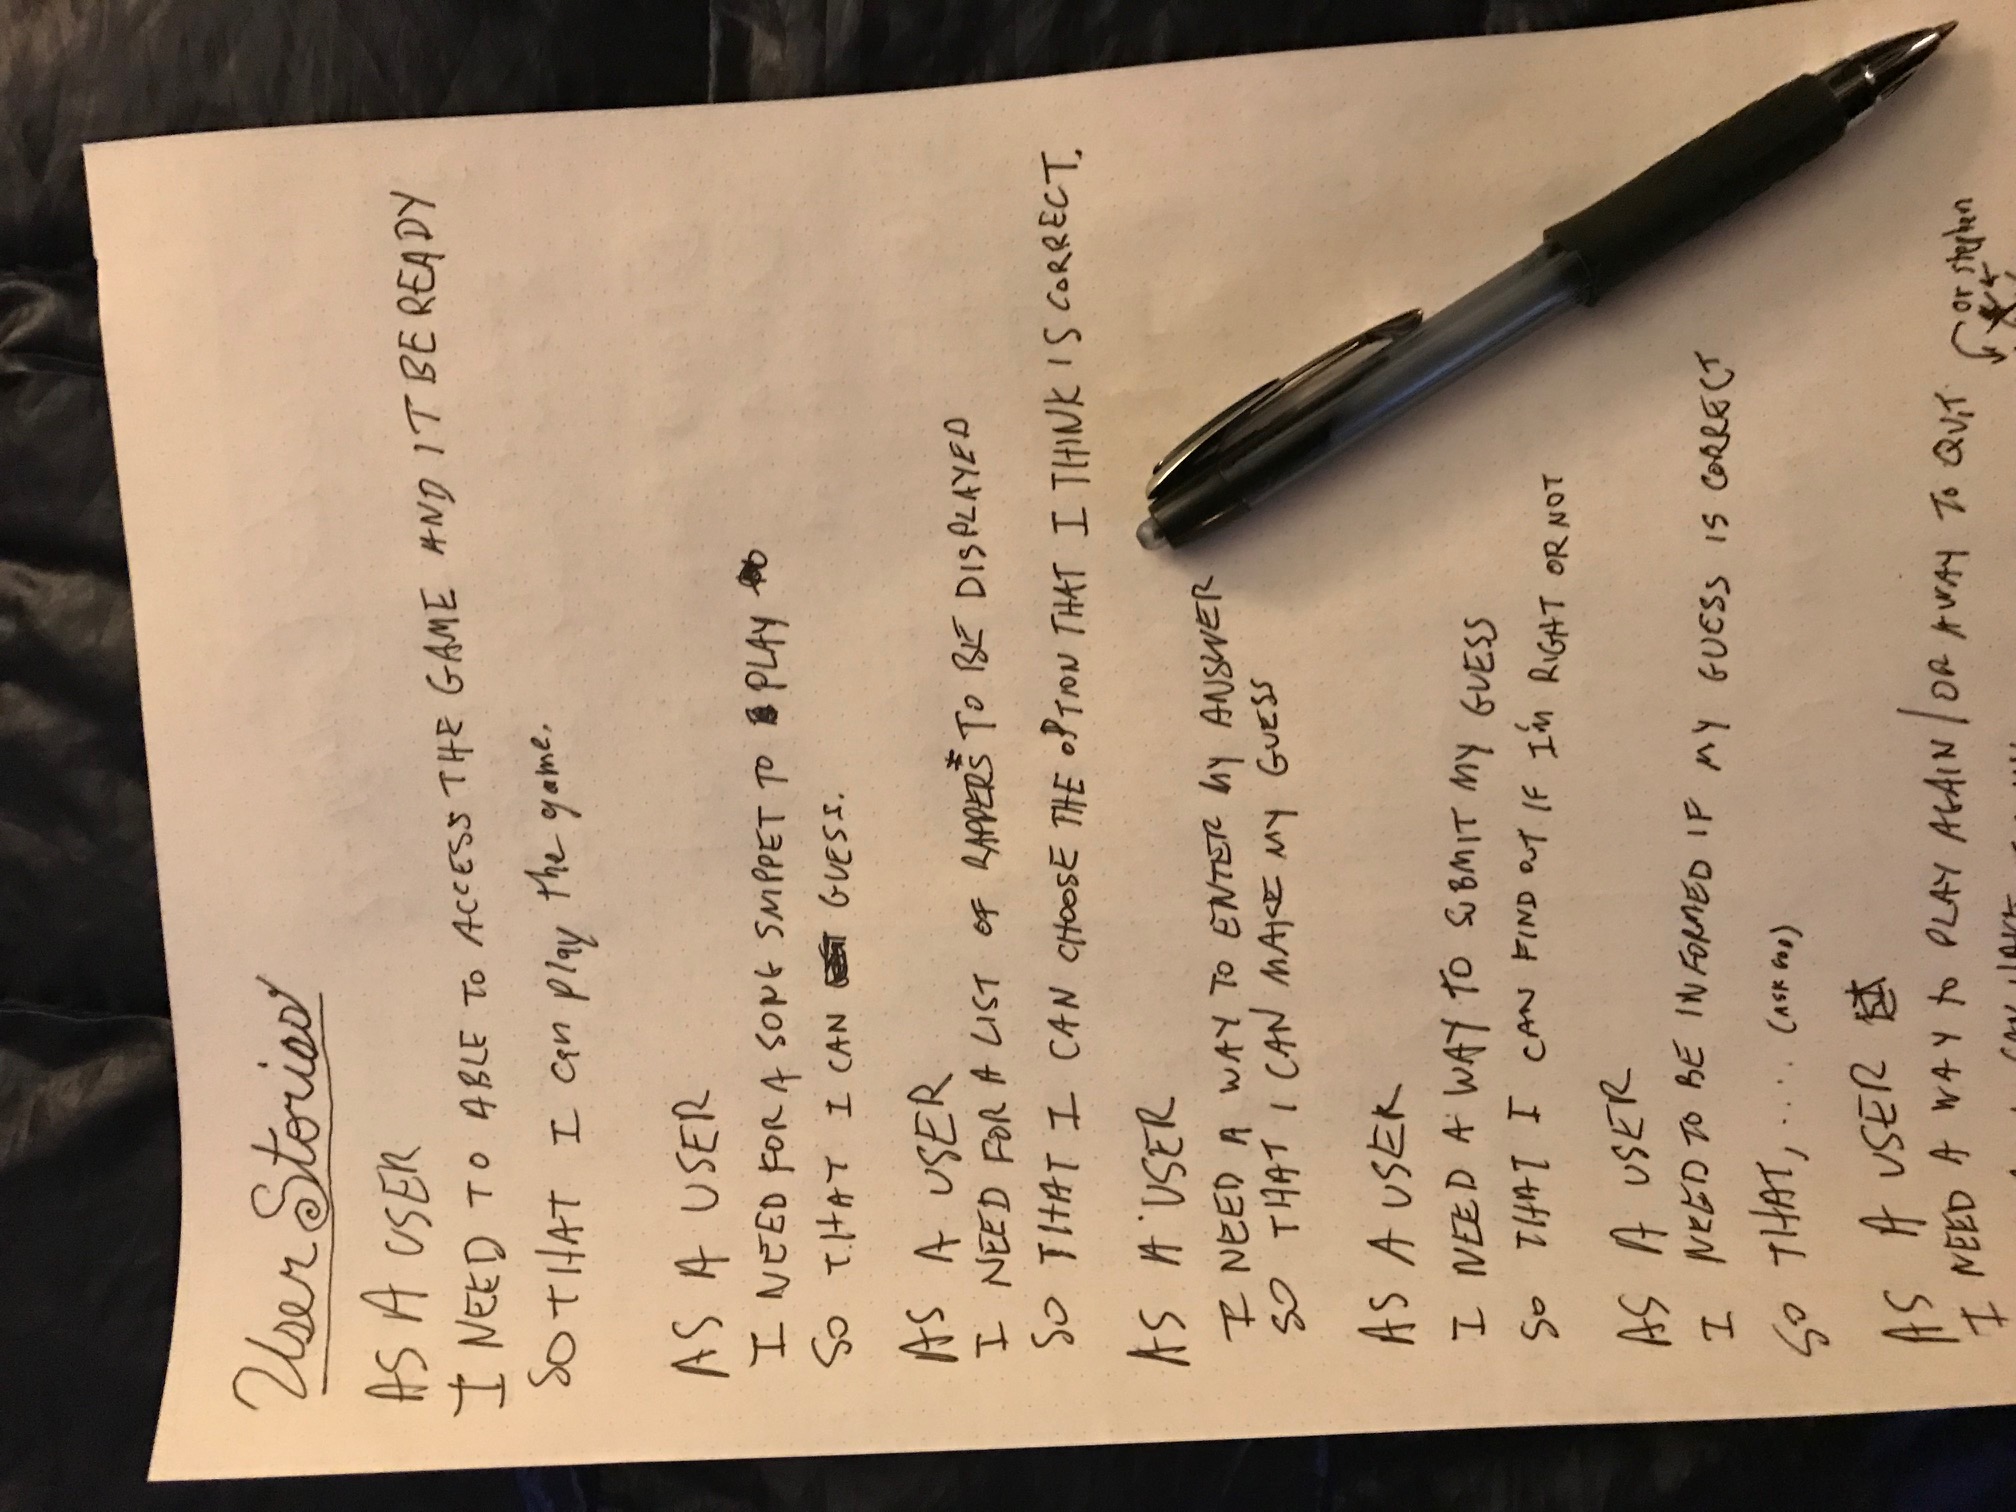 User Stories
AS A USER
I NEED TO ABLE TO ACCESS THE GAME AND IT BE READY
SO THAT I can play the game.
AS A USER
I NEED FOR A SONG SNIPPET TO PLAY
SO THAT I CAN GUESS.
AS A USER
I NEED FOR A LIST OF RAPPERS* TO BE DISPLAYED
SO THAT I CAN CHOOSE THE OPTION THAT I THINK IS CORRECT.
AS A USER
I NEED A WAY TO ENTER MY ANSWER
SO THAT I CAN MAKE MY GUESS
AS A USER
I NEED A WAY TO SUBMIT MY GUESS
SO THAT I CAN FIND OUT IF I'M RIGHT OR NOT
AS A USER
I NEED TO BE INFORMED IF MY GUESS IS CORRECT
SO THAT, .... (ASK GOD)
AS A USER
I NEED A WAY to PLAY AGAIN/OR A WAY TO QUIT
or stephen
CAN HAVE